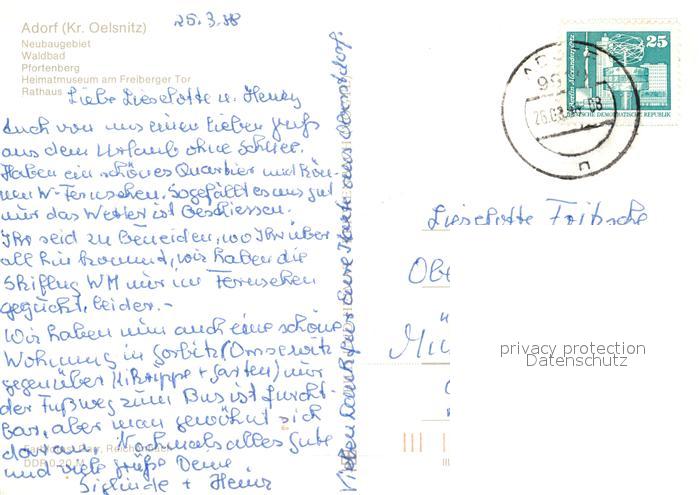 Adorf (Kr. Oelsnitz)
Neubaugebiet
Waldbad
Pfortenberg
Heimatmuseum am Freiberger Tor
Rathaus
25.3.88
Liebe Lieselotte u. Henry
Auch von uns einen lieben Gruß
aus dem Urlaub ohne Schnee.
Haben ein schönes Quartier und kön-
nen W-Fernsehen. So gefällt es uns gut
nur das Wetter ist Beschiessen.
Ihr seid zu beneiden, wo Ihr über-
all hin kommt, wir haben die
Skiflug WM nur im Fernsehen
geguckt, leider.-
Wir haben nun auch eine schöne
Wohnung in Gorbitz (Omsewitz
gegenüber Ki.Krippe + Garten) nur
der Fußweg zum Bus ist furcht-
bar, aber man gewöhnt sich
daran. Nochmals alles Gute
und viele Grüße Deine
Sieglinde + Heinz
Vielen Dank für Eure Karte aus Oberstdorf.
DDR 0,20 M
25
Berlin, Alexanderplatz
DEUTSCHE DEMOKRATISCHE REPUBLIK
Lieselotte Fritsche
Obe
Mü
privacy protection
Datenschutz